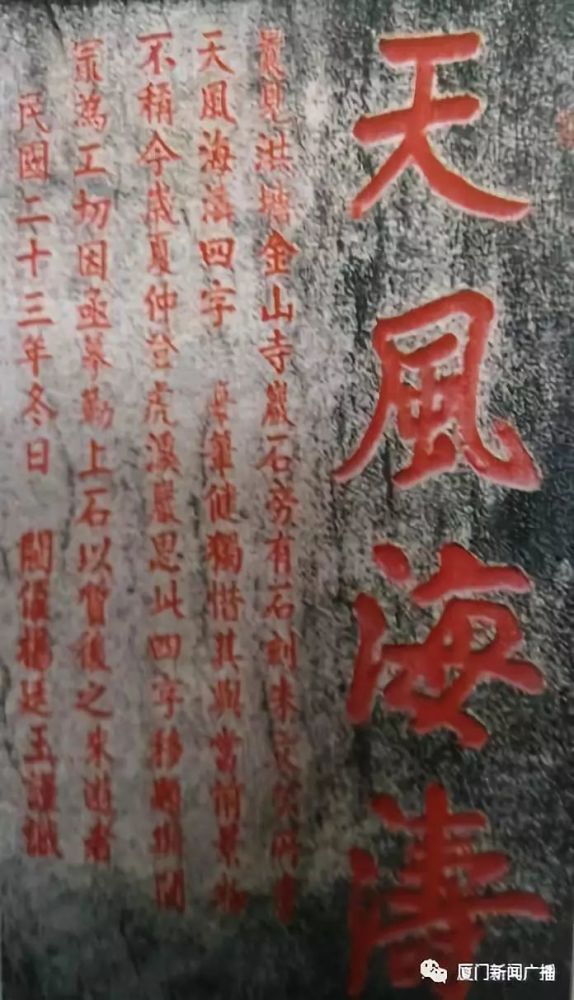 天風海濤
曩見洪塘金山寺巖石旁有石刻朱文公所書
天風海濤四字 筆健獨惜其與當前景物
不稱今歲夏仲登虎溪巖思此四字移題
最為工切因亟摹勒上石以質後之來遊者
民國二十三年冬日 閩侯楊廷玉謹識
厦门新闻广播